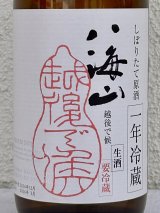 しぼりたて原酒
一年冷蔵
八海山
越後で候
生酒
要冷蔵
越後で候